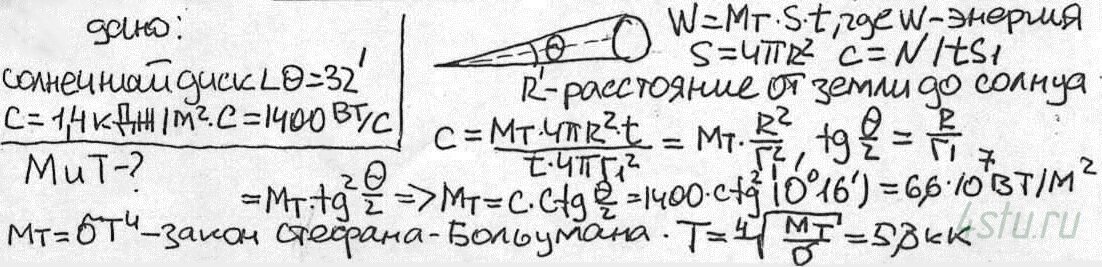 дано:
солнечный диск ∠θ=32'
C=1,4кДж/м²·C=1400Вт/с
M и T-?
θ
W=Mт·S·t, где W-энергия
S=4πR² C=W/tS₁
R'-расстояние от земли до солнца
C=Mт·4πR²·t/t·4πr₁²=Mт·R²/r₁², tg θ/2=R/r₁
=Mт·tg² θ/2 => Mт=C·ctg² θ/2=1400·ctg²(0°16')=6,6·10⁷Вт/м²
Mт=σT⁴-закон Стефана-Больцмана. T=⁴√Mт/σ=5,8кК
4stu.ru